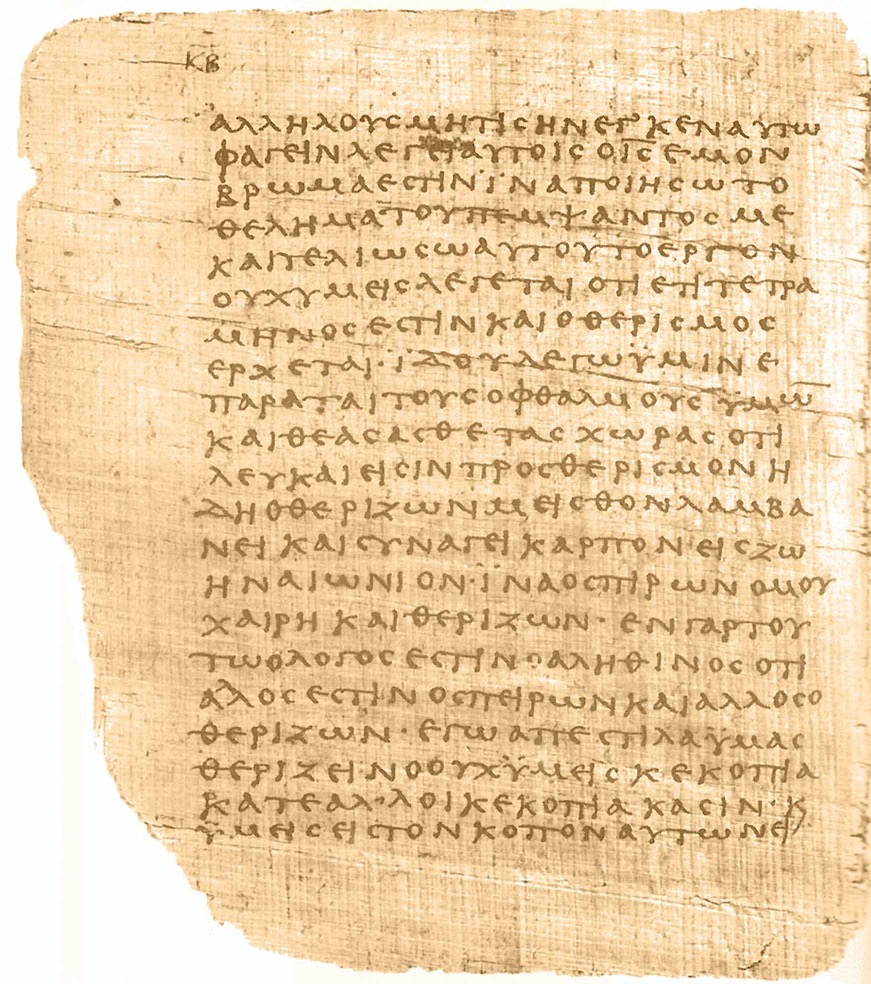 ΚΒ
ΑΛΛΗΛΟΥϹΜΗΤΙϹΗΝΕΓΚΕΝΑΥΤΩ
ΦΑΓΕΙΝΛΕΓΕΙΑΥΤΟΙϹΟΙϹΕΜΟΝ
ΒΡΩΜΑΕϹΤΙΝΪΝΑΠΟΙΗϹΩΤΟ
ΘΕΛΗΜΑΤΟΥΠΕΜΨΑΝΤΟϹΜΕ
ΚΑΙΤΕΛΙΩϹΩΑΥΤΟΥΤΟΕΡΓΟΝ
ΟΥΧΥΜΕΙϹΛΕΓΕΤΑΙΟΤΙΕΤΙΤΕΤΡΑ
ΜΗΝΟϹΕϹΤΙΝΚΑΙΟΘΕΡΙϹΜΟϹ
ΕΡΧΕΤΑΙ·ΪΔΟΥΛΕΓΩΫΜΙΝΕ
ΠΑΡΑΤΑΙΤΟΥϹΟΦΘΑΛΜΟΥϹΫΜΩ̅
ΚΑΙΘΕΑϹΑϹΘΕΤΑϹΧΩΡΑϹΟΤΙ
ΛΕΥΚΑΙΕΙϹΙΝΠΡΟϹΘΕΡΙϹΜΟΝΗ
ΔΗΟΘΕΡΙΖΩΝΜΕΙϹΘΟΝΛΑΜΒΑ
ΝΕΙΚΑΙϹΥΝΑΓΕΙΚΑΡΠΟΝΕΙϹΖΩ
ΗΝΑΙΩΝΙΟΝ·ΪΝΑΟϹΠΙΡΩΝΟΜΟΥ
ΧΑΙΡΗΚΑΙΘΕΡΙΖΩΝ·ΕΝΓΑΡΤΟΥ
ΤΩΟΛΟΓΟϹΕϹΤΙΝΟΑΛΗΘΙΝΟϹΟΤΙ
ΑΛΟϹΕϹΤΙΝΟϹΠΕΙΡΩΝΚΑΙΑΛΛΟϹΟ
ΘΕΡΙΖΩΝ·ΕΓΩΑΠΕϹΤΙΛΑΫΜΑϹ
ΘΕΡΙΖΕΙΝΟΟΥΧΫΜΕΙϹΚΕΚΟΠΙΑ
ΚΑΤΕΑΛ·ΛΟΙΚΕΚΟΠΙΑΚΑϹΙΝ·Κ/
ΫΜΕΙϹΕΙϹΤΟΝΚΟΠΟΝΑΥΤΩΝΕΙ